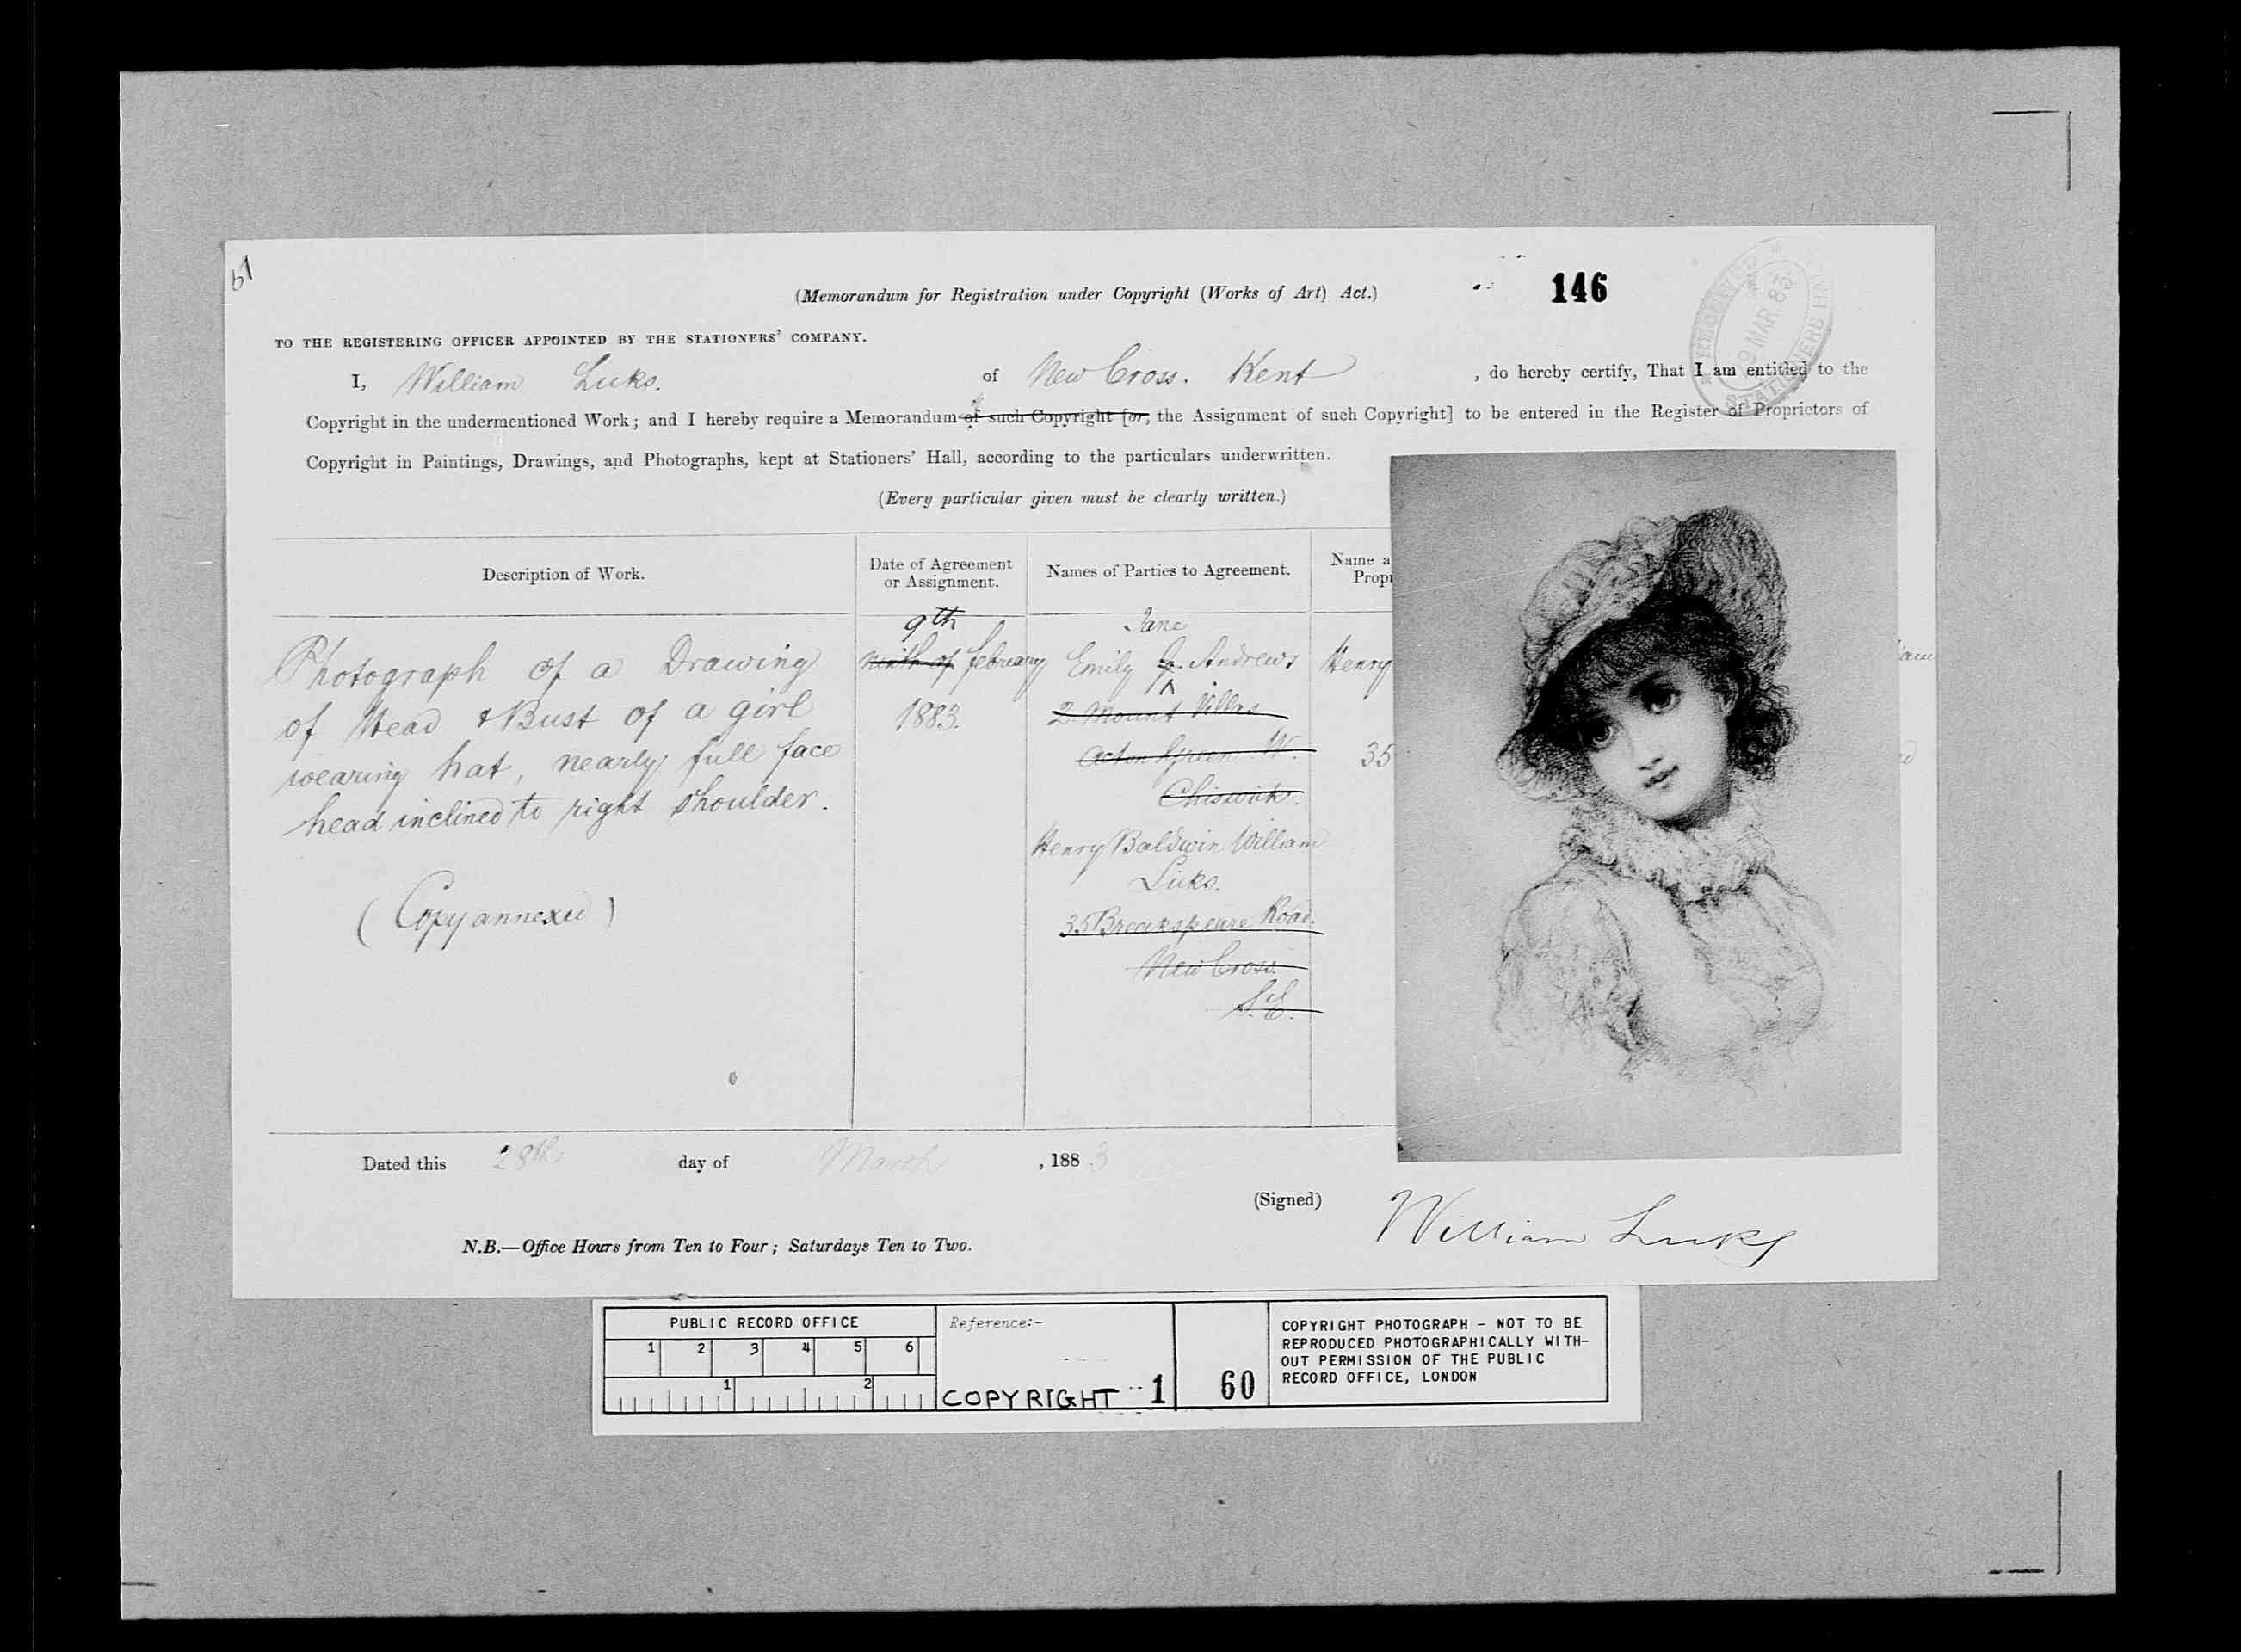 51
(Memorandum for Registration under Copyright (Works of Art) Act.)
146
9 MAR. 83
STATIONERS HALL
TO THE REGISTERING OFFICER APPOINTED BY THE STATIONERS' COMPANY.
I, William Luks. of New Cross. Kent , do hereby certify, That I am entitled to the
Copyright in the undermentioned Work; and I hereby require a Memorandum of such Copyright [or, the Assignment of such Copyright] to be entered in the Register of Proprietors of
Copyright in Paintings, Drawings, and Photographs, kept at Stationers' Hall, according to the particulars underwritten.
(Every particular given must be clearly written.)
Description of Work.
Photograph of a Drawing
of Head & Bust of a girl
wearing hat, nearly full face
head inclined to right shoulder.
(Copy annexed)
Date of Agreement
or Assignment.
9th
ninth of february
1883.
Names of Parties to Agreement.
Jane
Emily J. Andrews
2 Mount Villas
Acton Green. W.
Chiswick.
Henry Baldwin William
Luks.
35 Breakspeare Road.
New Cross.
S.E.
Name a
Propr
Henry
35
Dated this 28th day of March , 1883
(Signed) William Luks
N.B.—Office Hours from Ten to Four; Saturdays Ten to Two.
PUBLIC RECORD OFFICE
1 2 3 4 5 6
1 2
Reference:-
COPYRIGHT 1 60
COPYRIGHT PHOTOGRAPH - NOT TO BE
REPRODUCED PHOTOGRAPHICALLY WITH-
OUT PERMISSION OF THE PUBLIC
RECORD OFFICE, LONDON